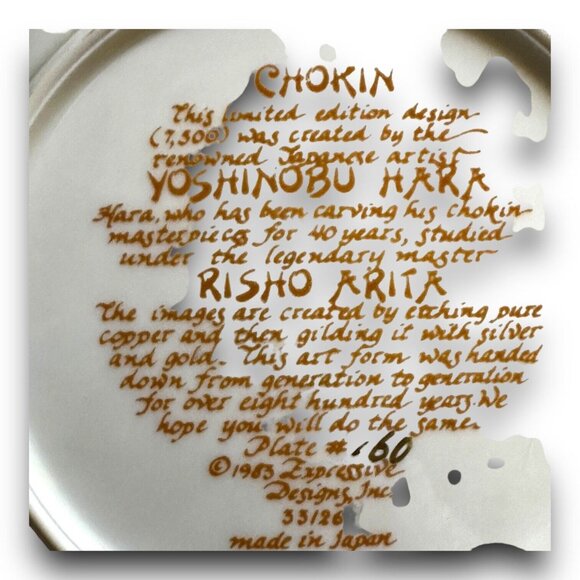 CHOKIN
This limited edition design
(7,500) was created by the
renowned Japanese artist
YOSHINOBU HARA
Hara, who has been carving his chokin
masterpieces for 40 years, studied
under the legendary master
RISHO ARITA
The images are created by etching pure
copper and then gilding it with silver
and gold. This art form was handed
down from generation to generation
for over eight hundred years. We
hope you will do the same.
Plate # 160
© 1983 Expressive
Designs, Inc.
33126
made in Japan